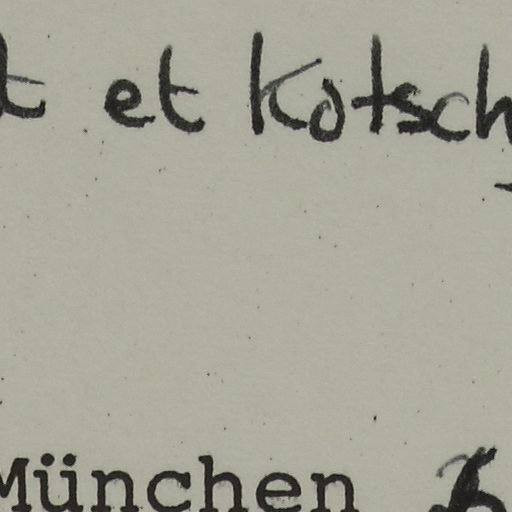 t et Kotsch
München